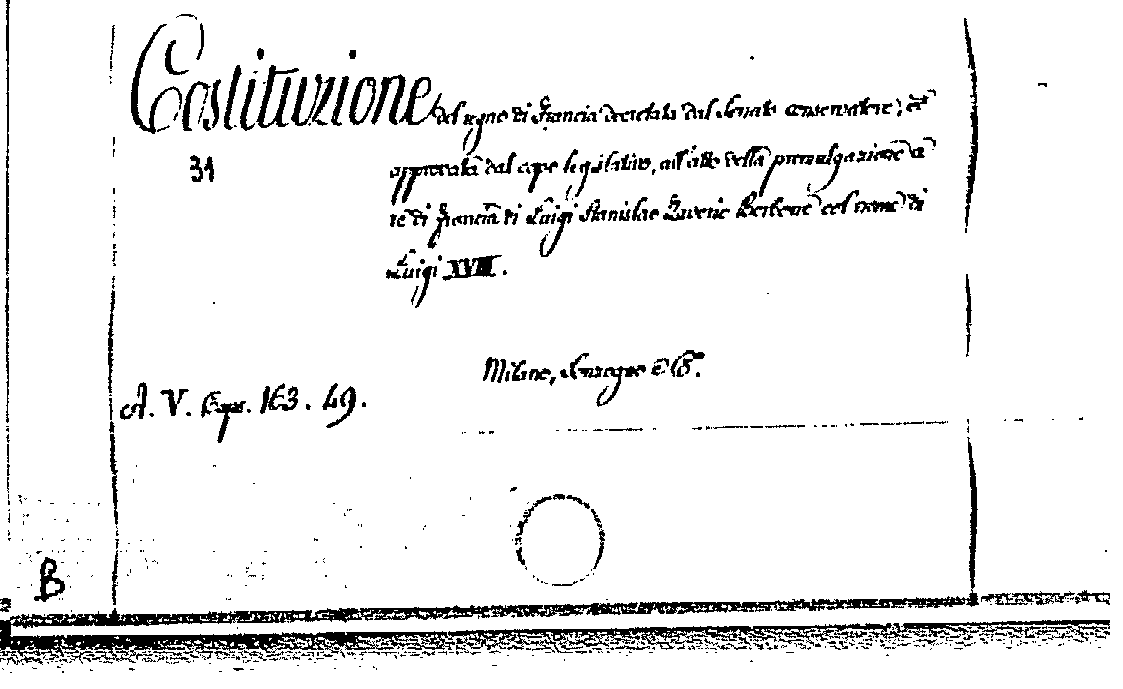 Costituzione del regno di Francia decretata dal Senato conservatore, ed
31
approvata dal corpo legislativo, all'atto della promulgazione a
re di Francia di Luigi Stanislao Saverio Borbone col nome di
Luigi XVIII.
Milano, Sonzogno e C.
A. V. Capr. 163. 49.
B